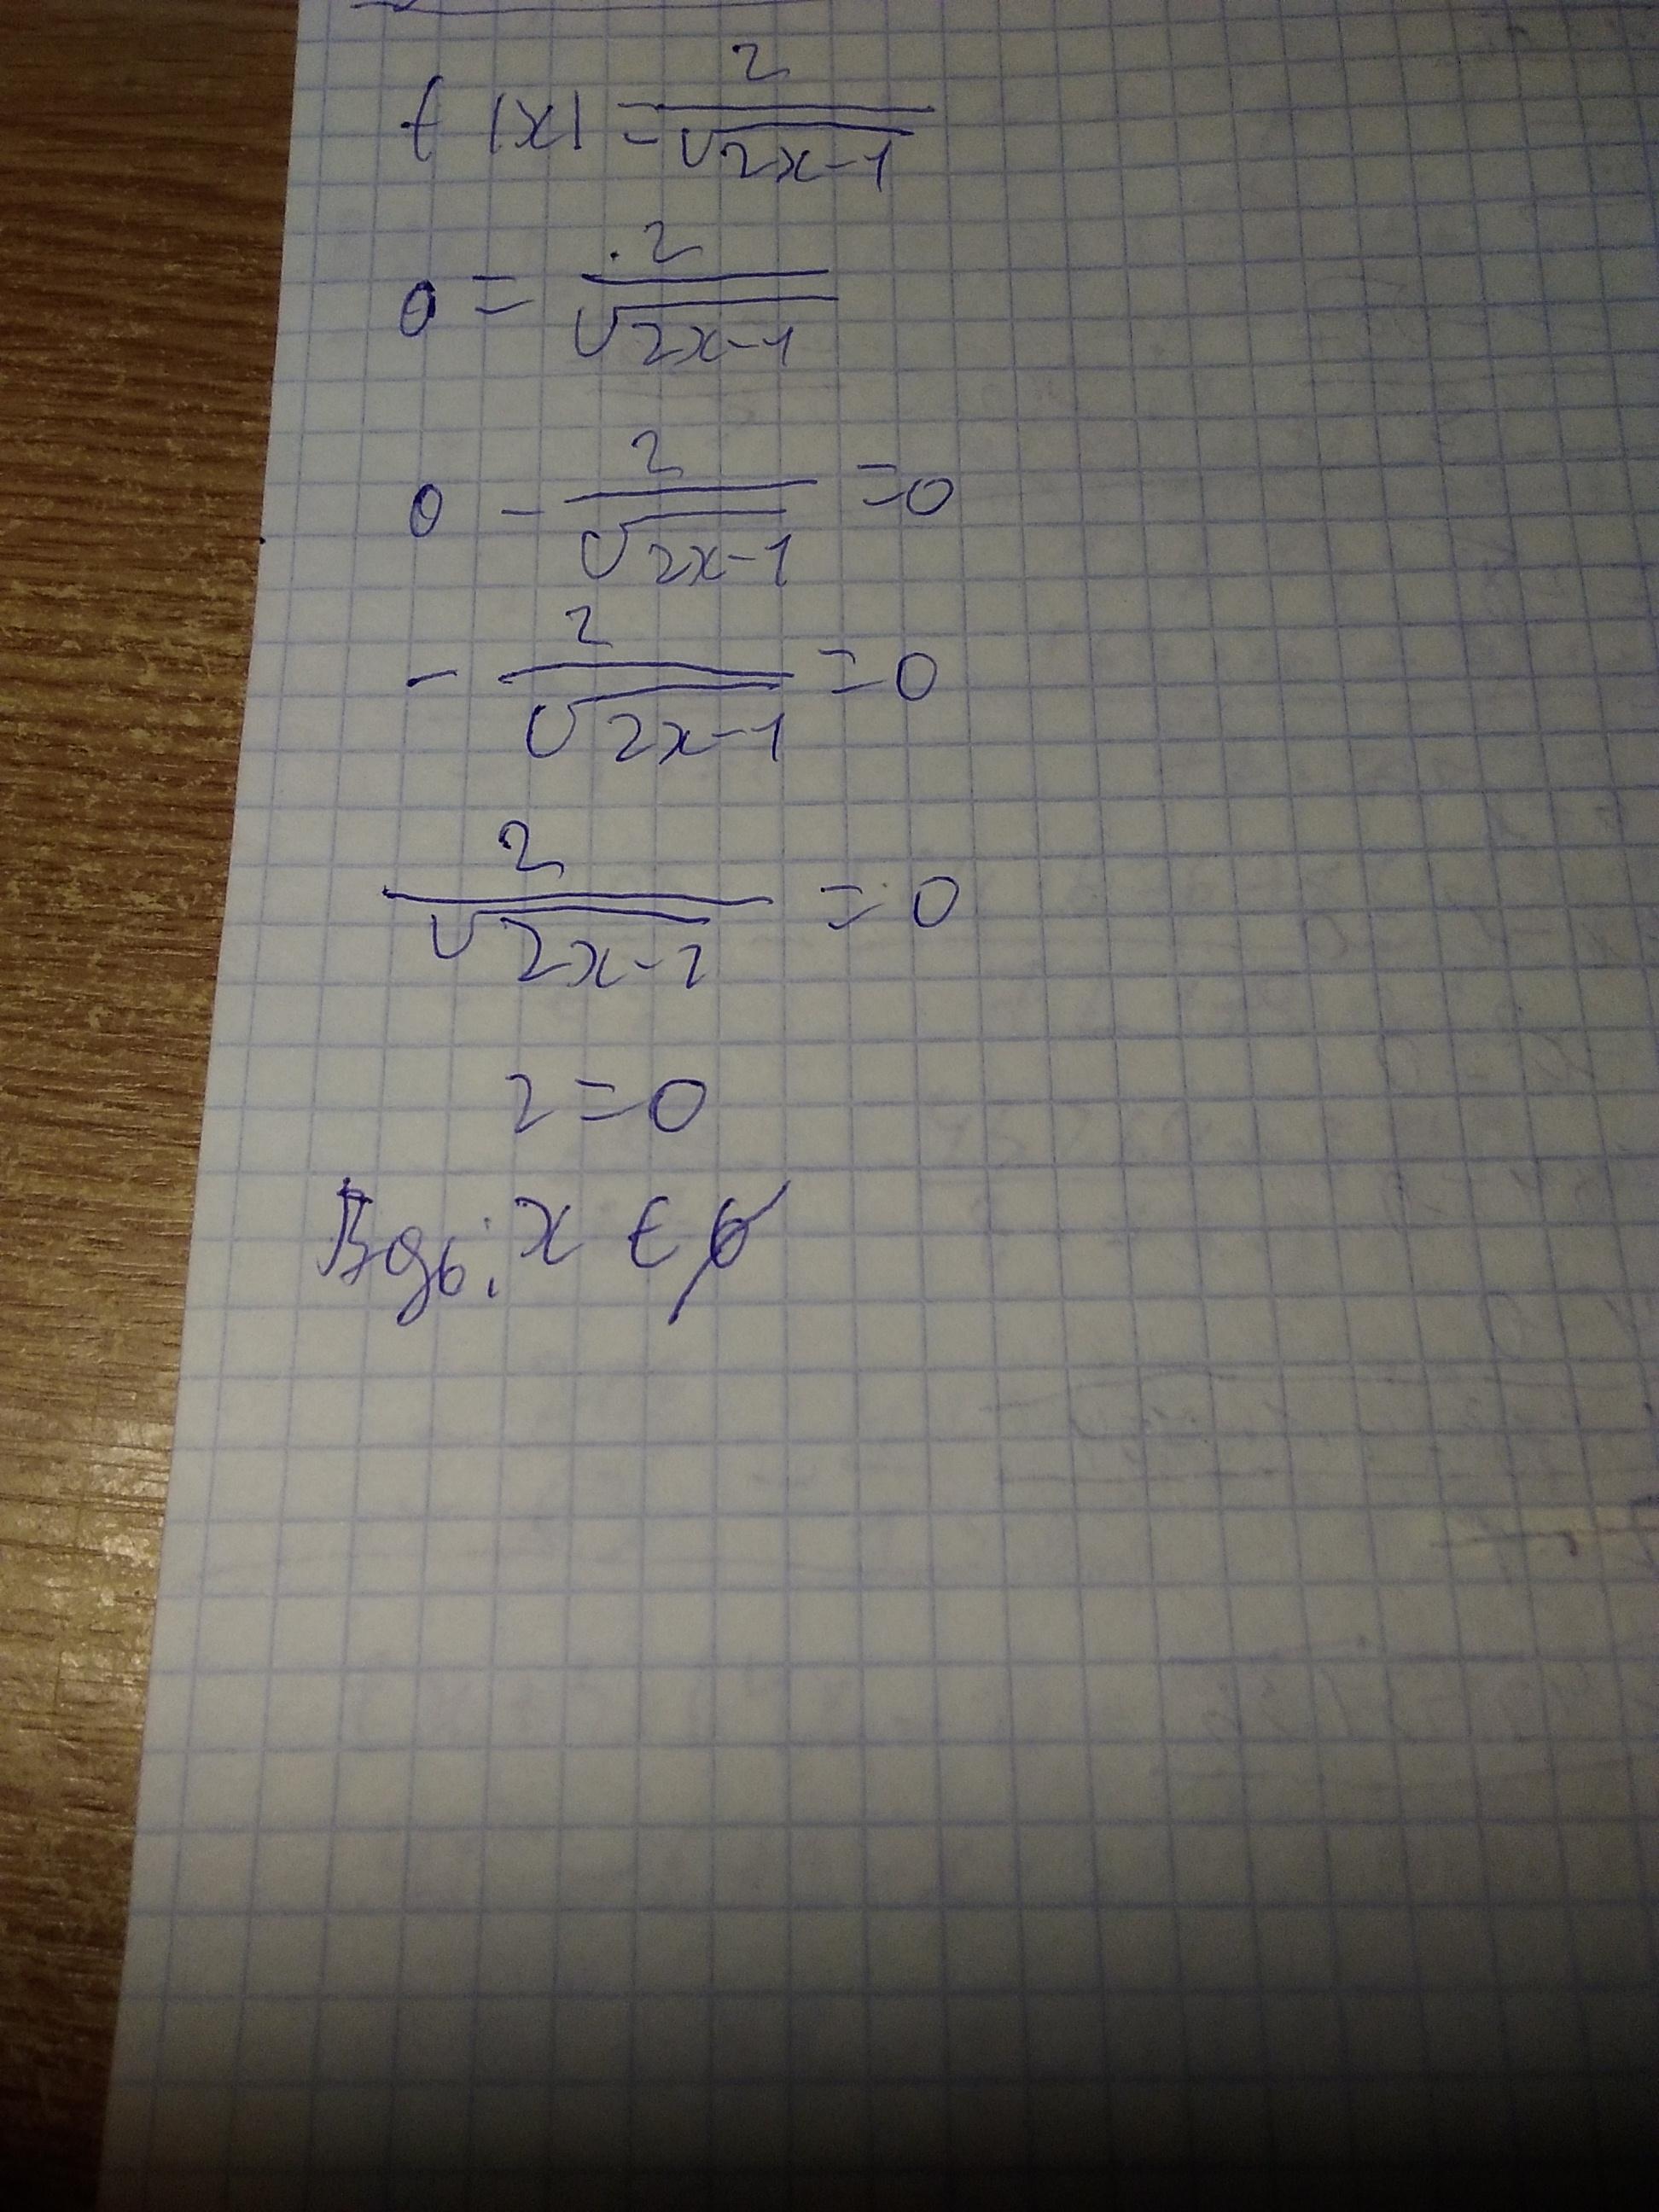 f |x| = 2/√(2x-1)
0 = 2/√(2x-1)
0 - 2/√(2x-1) = 0
- 2/√(2x-1) = 0
2/√(2x-1) = 0
2 = 0
x ∈ ∅